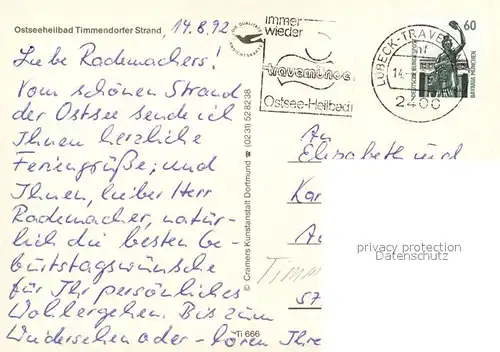 Ostseeheilbad Timmendorfer Strand, 14.8.92
Liebe Rademachers!
Vom schönen Strand
der Ostsee sende ich
Ihnen herzliche
Feriengrüße; und
Ihnen, lieber Herr
Rademacher, natür-
lich die besten Ge-
burtstagswünsche
für Ihr persönliches
Wohlergehen. Bis zum
Wiedersehen oder -hören Ihre
© Cramers Kunstanstalt Dortmund ☎ (0231) 52 82 38
Ti 666
immer
wieder
travemünde
Ostsee-Heilbad
LÜBECK-TRAVE
14.
2400
60
An
Elisabeth und
Kar
Timm
57
privacy protection
Datenschutz